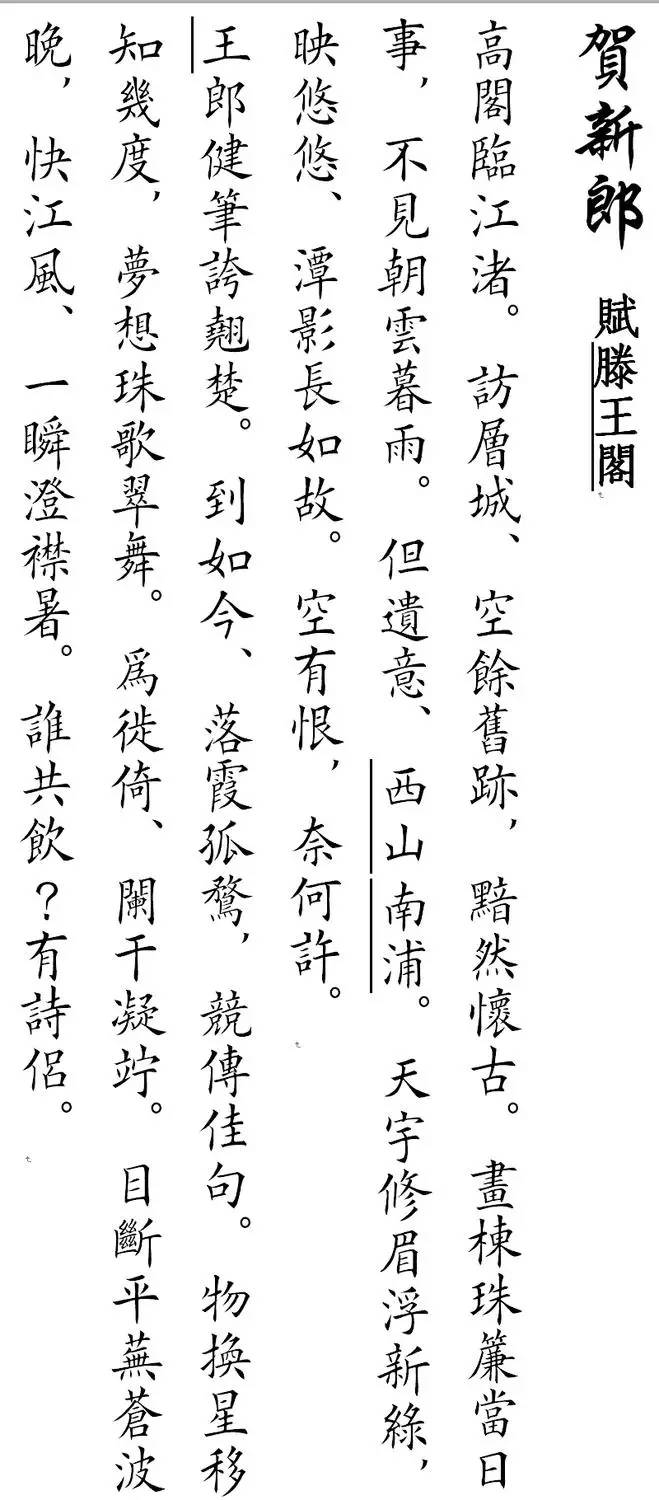 賀新郎 賦滕王閣
高閣臨江渚。訪層城、空餘舊跡，黯然懷古。畫棟珠簾當日
事，不見朝雲暮雨。但遺意、西山南浦。天宇修眉浮新綠，
映悠悠、潭影長如故。空有恨，奈何許。
王郎健筆誇翹楚。到如今、落霞孤鶩，競傳佳句。物換星移
知幾度，夢想珠歌翠舞。爲徙倚、闌干凝竚。目斷平蕪蒼波
晚，快江風、一瞬澄襟暑。誰共飲？有詩侶。